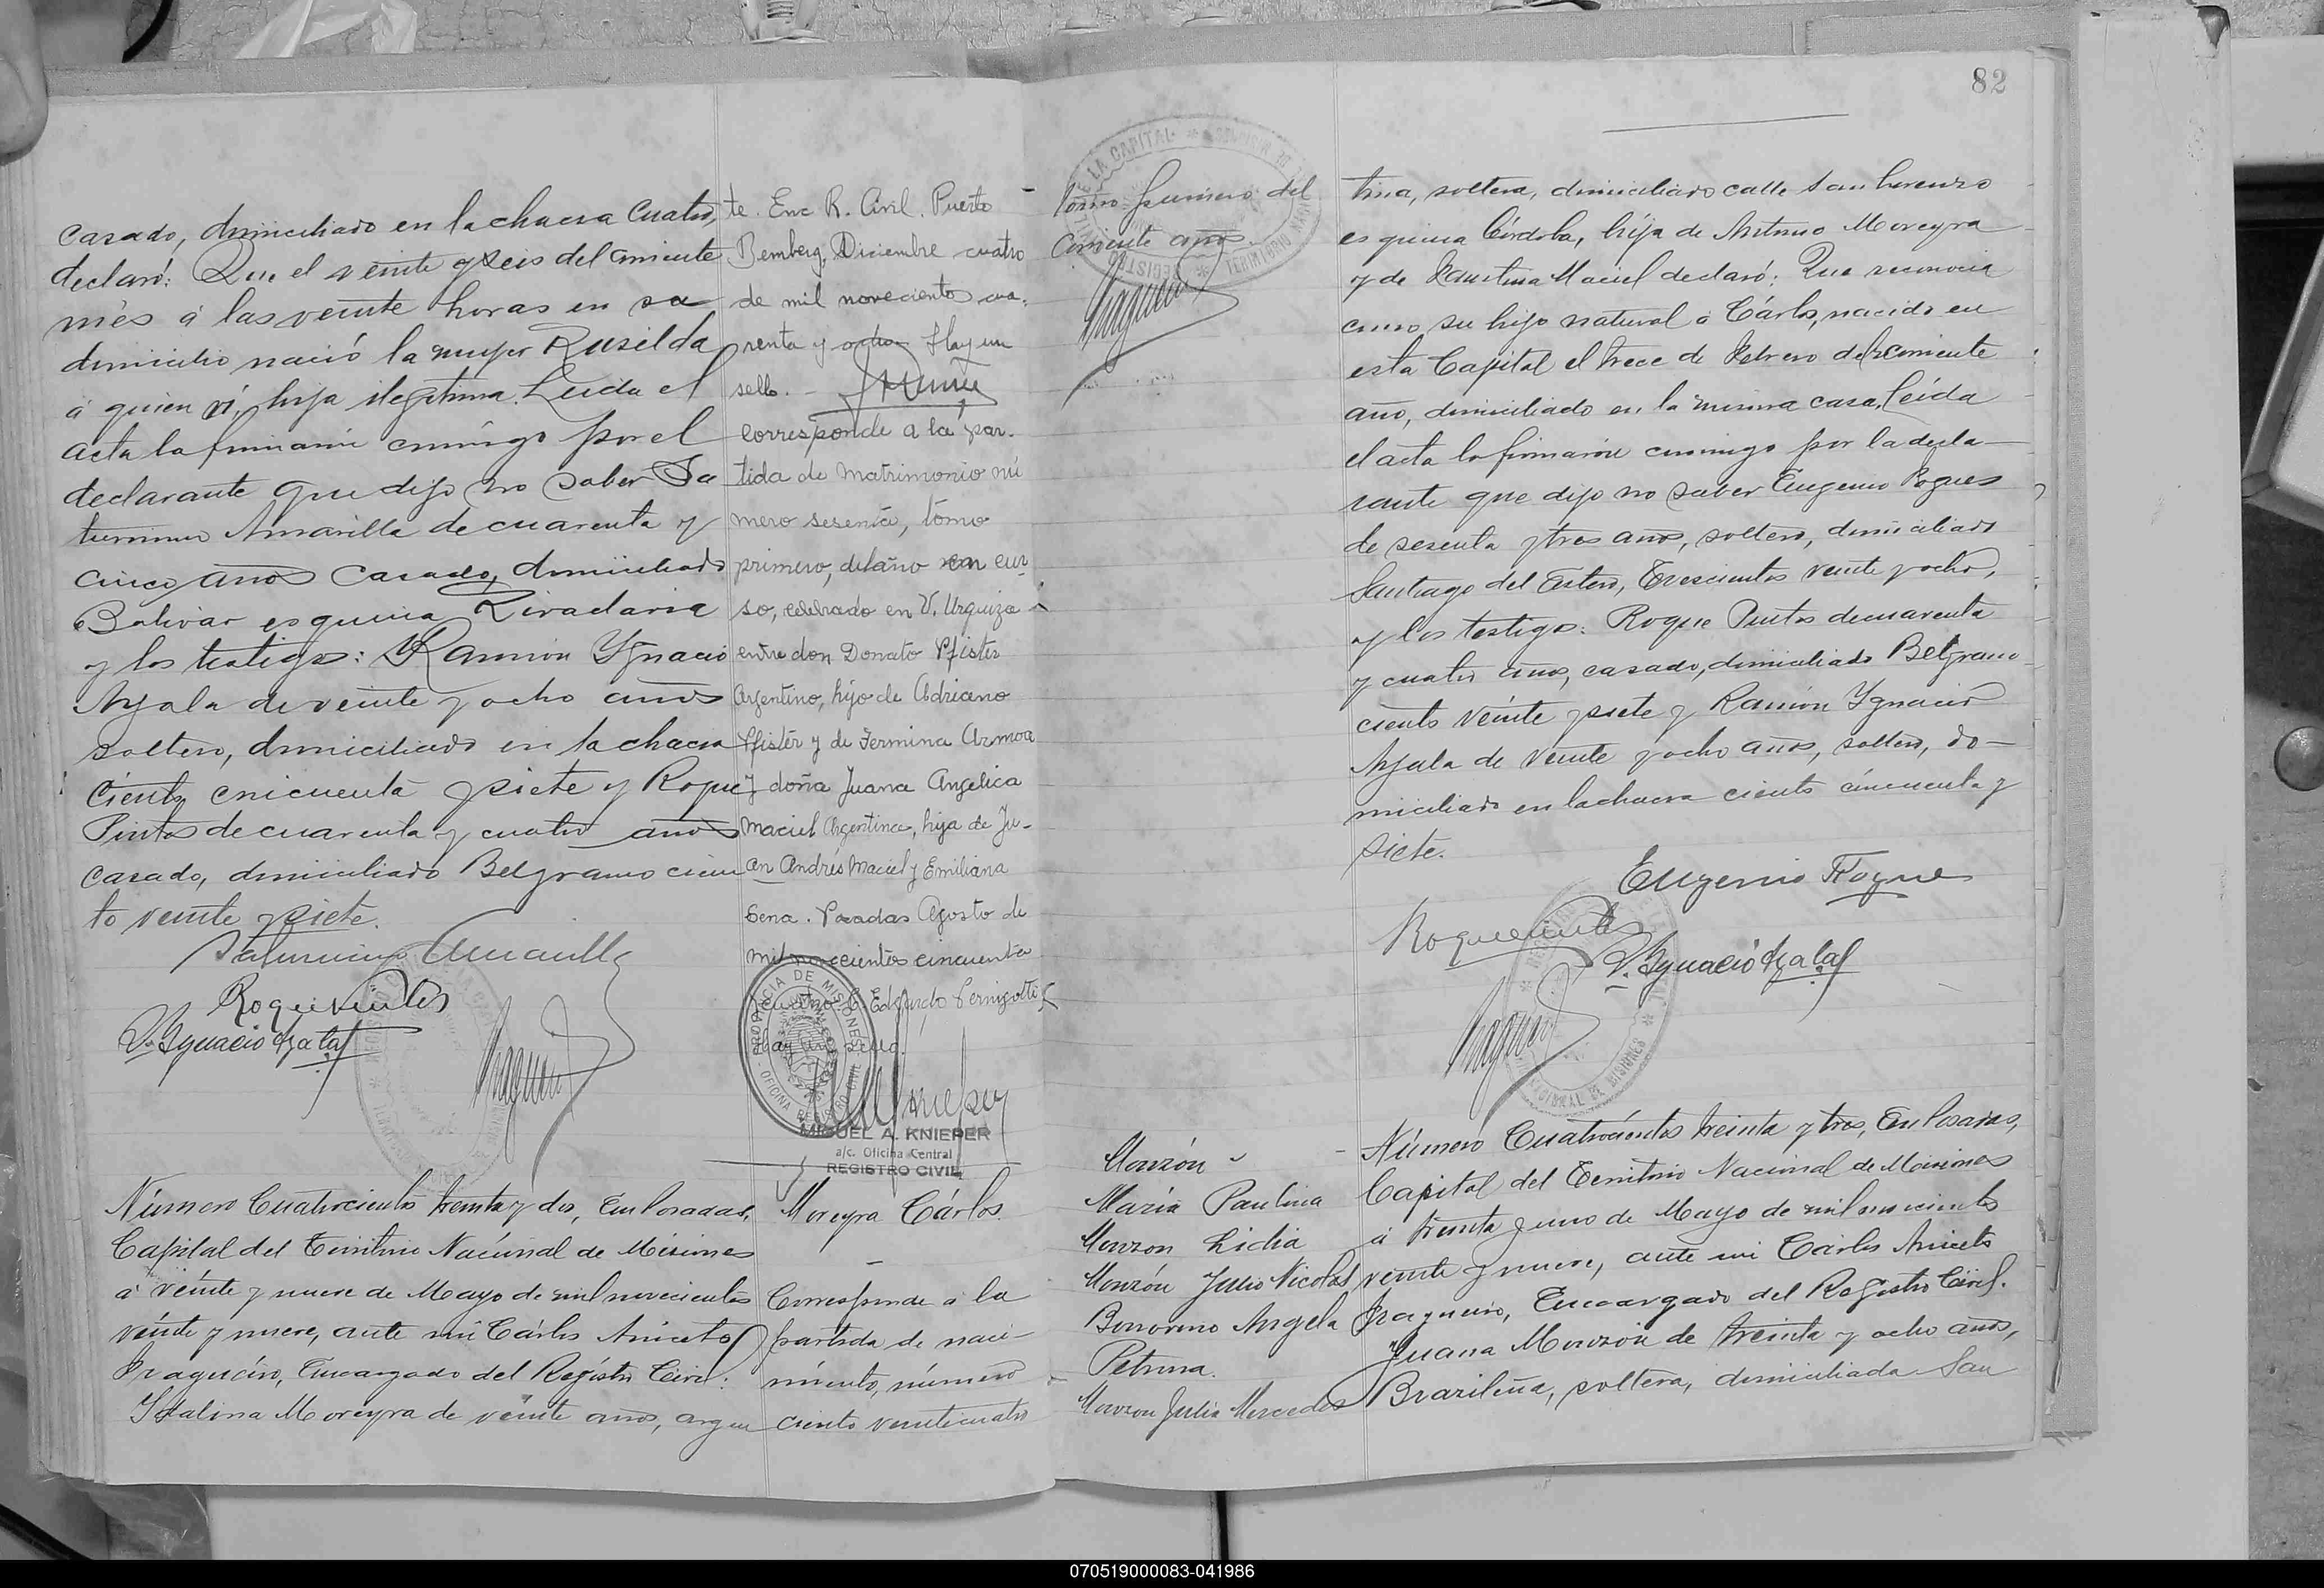 casado, domiciliado en la chacra cuatro,
declaró: Que el veinte y seis del corriente
més á las veinte horas en su
domicilio nació la mujer Rusilda
á quien ví, hija ilegítima. Leida el
acta la firmaron conmigo por el
declarante que dijo no saber Sa
turnino Amarilla de cuarenta y
cinco años casado, domiciliado
Bolivar esquina Rivadavia
y los testigos: Ramón Ygnacio
Ayala de veinte y ocho años
soltero, domiciliado en la chacra
ciento cincuenta y siete y Roque
Pintos de cuarenta y cuatro años
casado, domiciliado Belgrano cien
to veinte y siete.
Saturnino Amarilla
Roque Pintos
R. Ygnacio Ayala
te. Enc R. Civil. Puerto
Bemberg, Diciembre cuatro
de mil novecientos cua.
renta y ocho. Hay un
sello.-
Corresponde a la par-
tida de matrimonio nú
mero sesenta, tomo
primero, del año en cur
so, celebrado en V. Urquiza
entre don Donato Pfister
Argentino, hijo de Adriano
Pfister y de Fermina Armoa
y doña Juana Angelica
Maciel Argentina, hija de Ju-
an Andrés Maciel y Emiliana
Sena. Posadas Agosto de
mil novecientos cincuenta
y cuatro. Eduardo Pernigotti
Hay un sello.
PROVINCIA DE MISIONES
MIGUEL A. KNIEPER
a/c. Oficina Central
REGISTRO CIVIL
Número Cuatrocientos treinta y dos, En Posadas,
Capital del Territorio Nacional de Misiones
á veinte y nueve de Mayo de mil novecientos
veinte y nueve, ante mi Cárlos Aniceto
Fragueiro, Encargado del Registro Civil:
Idalina Moreyra de veinte años, argen
Moreyra Cárlos.
Corresponde á la
partida de naci-
miento, número
ciento veinticuatro
82
tomo primero del
corriente año.
tina, soltera, domiciliado calle San Lorenzo
esquina Córdoba, hija de Antonio Moreyra
y de Faustina Maciel declaró: Que reconocia
como su hijo natural á Cárlos, nacido en
esta Capital el trece de Febrero del corriente
año, domiciliado en la misma casa. Leída
el acta la firmaron conmigo por la decla-
rante que dijo no saber Eugenio Roques
de sesenta y tres años, soltero, domiciliado
Santiago del Estero, Trescientos veinte y ocho,
y los testigos: Roque Pintos de cuarenta
y cuatro años, casado, domiciliado Belgrano
ciento veinte y siete y Ramón Ygnacio
Ayala de veinte y ocho años, soltero, do-
miciliado en la chacra ciento cincuenta y
siete.
Eugenio Roques
Roque Pintos
R. Ygnacio Ayala
Monzón
María Paulina
Monzon Lidia
Monzón Julio Nicolas
Bonorino Angela
Petrona.
Monzon Julia Mercedes
Número Cuatrocientos treinta y tres, En Posadas,
Capital del Territorio Nacional de Misiones
á treinta y uno de Mayo de mil novecientos
veinte y nueve, ante mi Cárlos Aniceto
Fragueiro, Encargado del Registro Civil.
Juana Monzón de treinta y ocho años,
Brazileña, soltera, domiciliada San
070519000083-041986